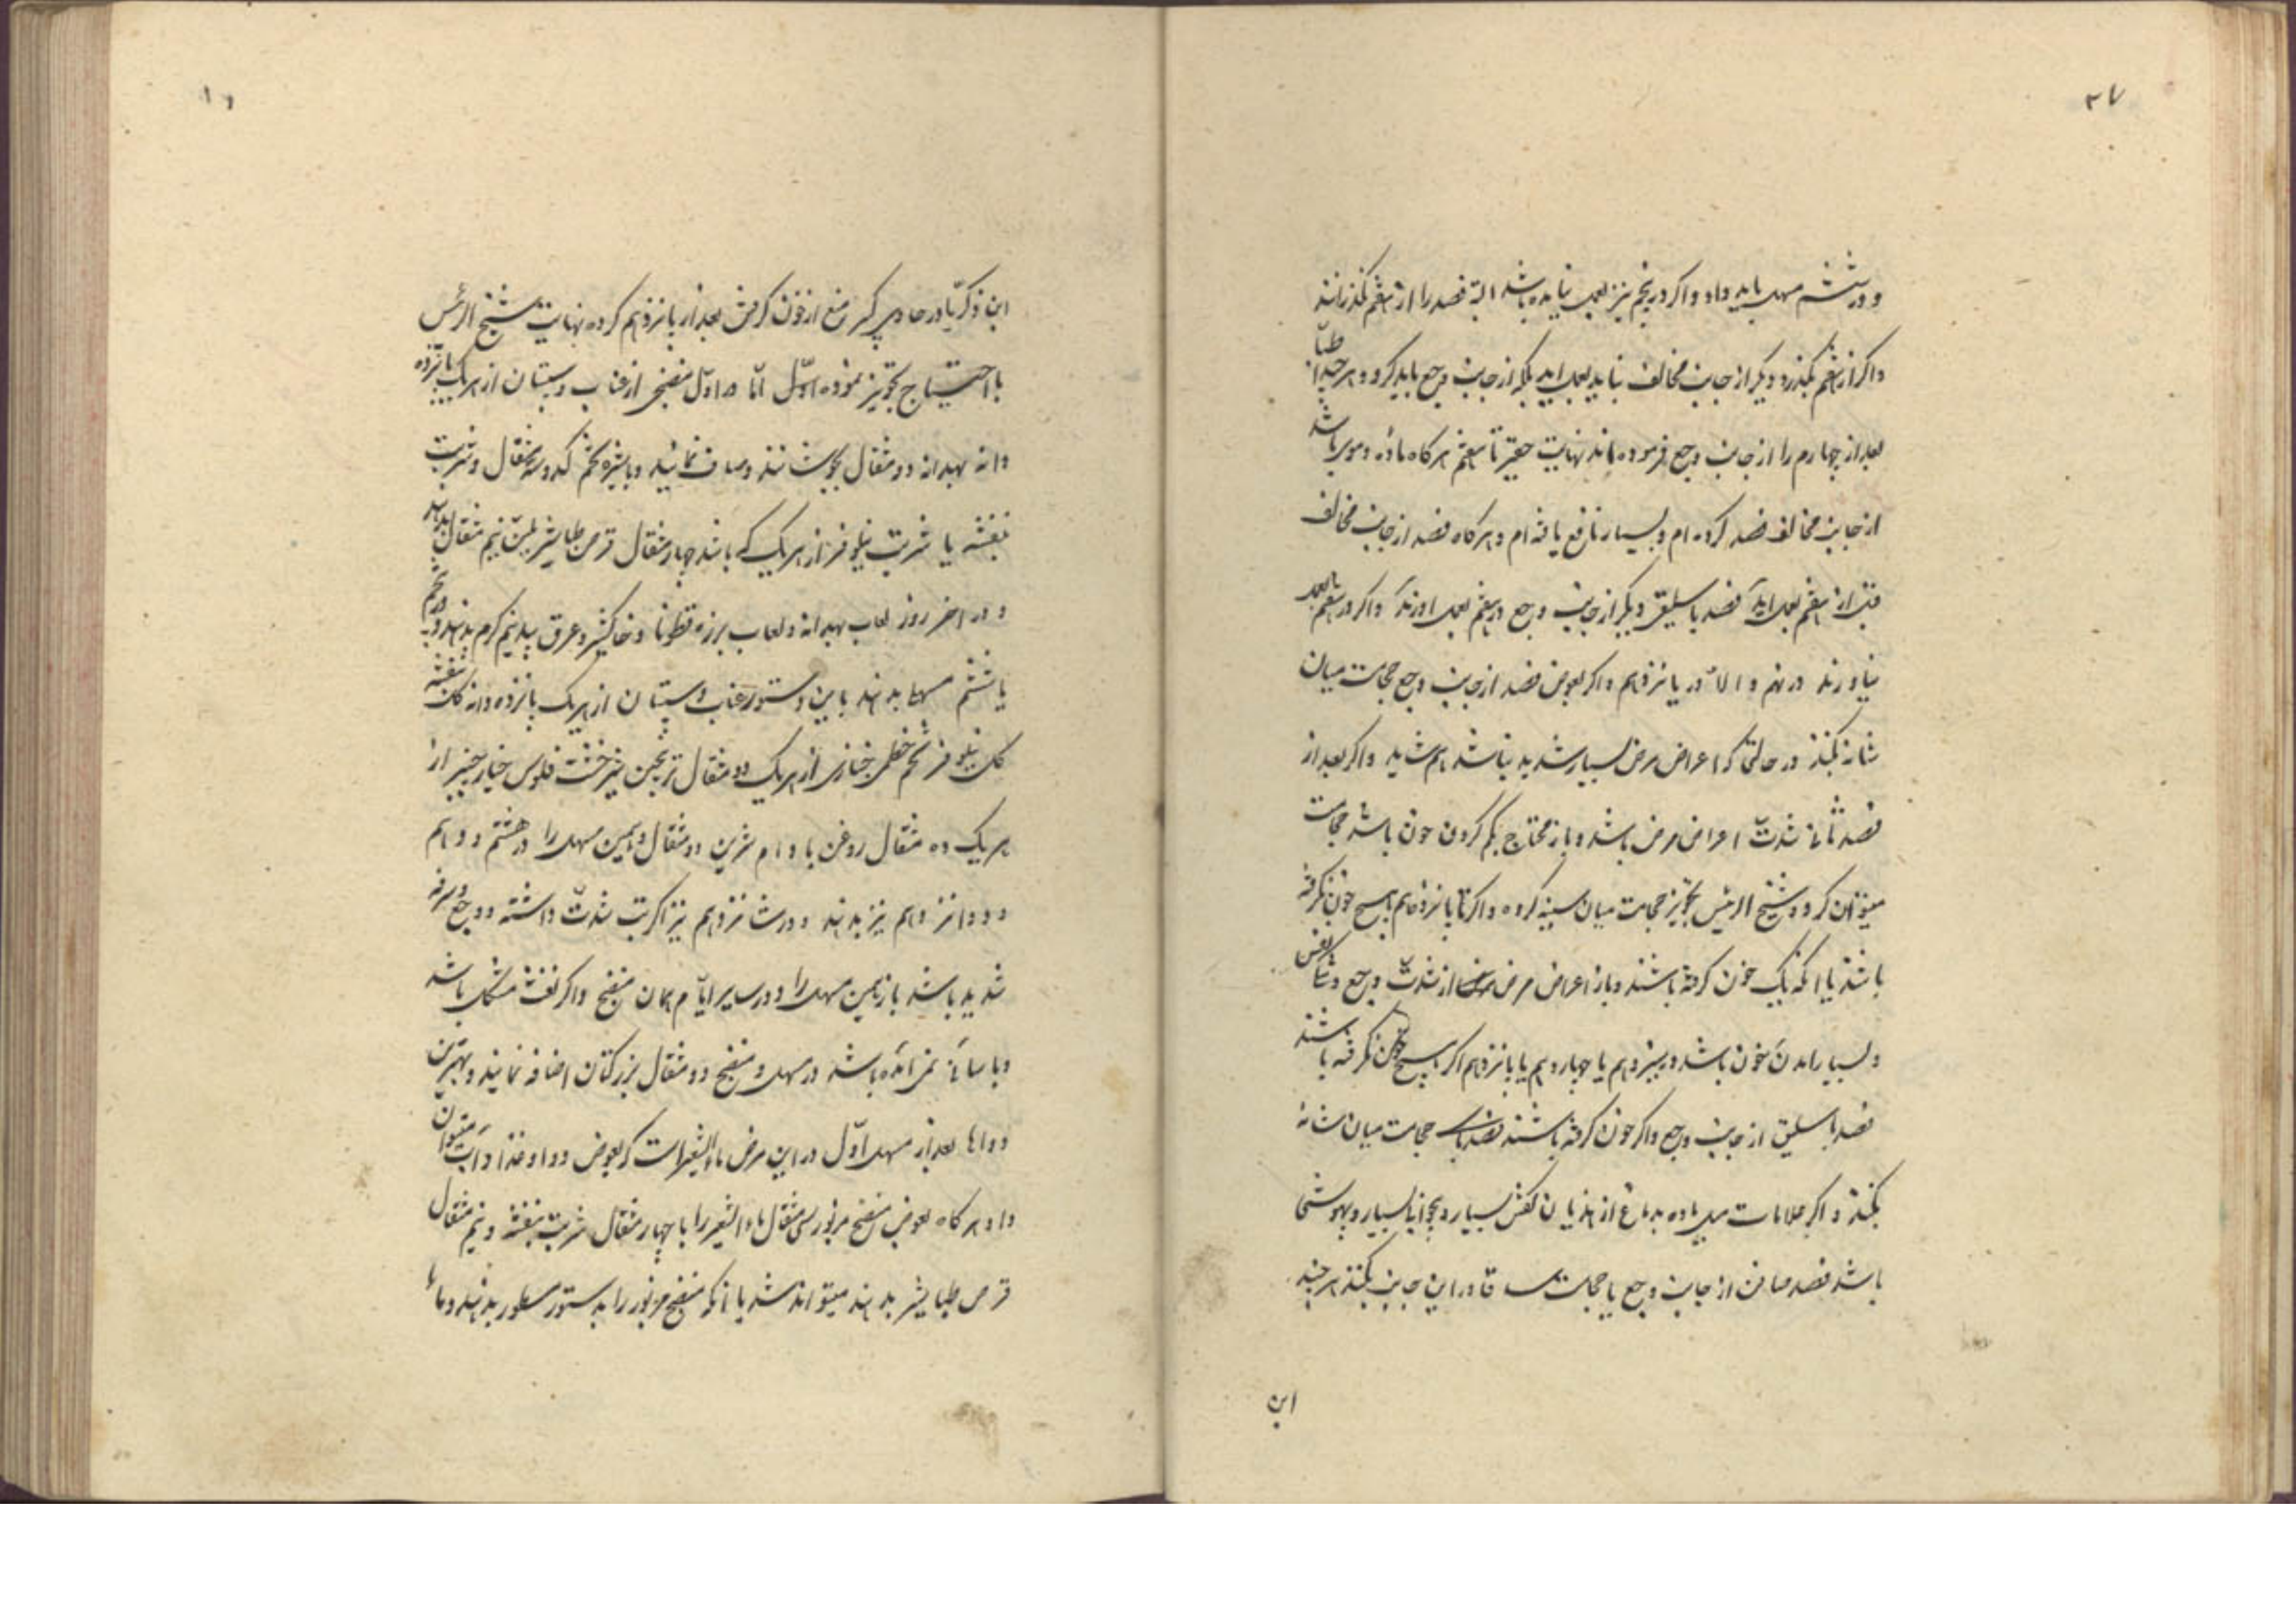 ۳۷
و در ششم مسهل باید داد و اگر در پنجم نیز بعمل نیامده باشد البته فصد را از هفتم نگذرانند
و اگر از هفتم بگذرد دیگر از جانب مخالف نباید بعمل اید بلکه از جانب وجع باید کرد و هر چند اطبا
بعد از چهارم را از جانب وجع فرموده اند نهایت حقیر تا هفتم هر کاه ماده دموی باشد
از جانب مخالف فصد کرده ام و بسیار نافع یافته ام و هر کاه فصد از جانب مخالف
قبل از هفتم بعمل اید فصد باسلیق دیگر از جانب وجع در هفتم بعمل اورند و اگر در هفتم بعمل
نیاورند در نهم و الا در یازدهم و اگر بعوض فصد از جانب وجع حجامت میان
شانه بکنند در حالتی که اعراض مرض بسیار شدید نباشد هم شاید و اگر بعد از
فصد ثانی شدت اعراض مرض باشد و باز محتاج بکم کردن خون باشد حجامت
میتوان کرد و شیخ الرئیس تجویز حجامت میان سینه کرده و اگر تا پانزدهم هیچ خون نکرفته
باشند یا انکه یک خون کرفته باشند و باز اعراض مرض از شدت وجع و تنکی نفس
و بسیار امدن خون باشد در سیزدهم یا چهاردهم یا پانزدهم اگر هیچ خون نکرفته باشند
فصد باسلیق از جانب وجع و اگر خون کرفته باشند حجامت میان شانه
بکنند و اگر علامات میل ماده بدماغ از هذیان کفتن بسیار و بیخوابی بسیار و بیهوشی
باشد فصد صافن از جانب وجع یا حجامت ساق در این جانب بکنند هر چند
ابن
ابن ذکریا در حاوی کبیر منع از خون کرفتن بعد از پانزدهم کرده نهایت شیخ الرئیس
با احتیاج تجویز نموده اول اما در اول منضجی از عناب و سپستان از هر یک پانزده
دانه بهدانه دو مثقال بجوشانند و صاف نمایند و با شیره تخم کدو سه مثقال و شربت
بنفشه یا شربت نیلوفر از هر یک که باشد چهار مثقال قرص طباشیر ملین نیم مثقال بدهند
و در اخر روز لعاب بهدانه و لعاب بزرقطونا و خاکشیر و عرق بید نیم کرم بدهند و در پنجم
یا ششم مسهل بدهند باین دستور عناب و سپستان از هر یک پانزده دانه کل بنفشه
کل نیلوفر تخم خطمی خبازی از هر یک دو مثقال ترنجبین شیرخشت فلوس خیارچنبر از
هر یک ده مثقال روغن بادام شیرین دو مثقال و همین مسهل را در هشتم و دهم
و دوازدهم نیز بدهند و در شانزدهم نیز اگر تب شدت داشته و وجع و سرفه
شدید باشد باز همین مسهل را و در سایر ایام همان منضج و اگر نفث مشکل باشد
و باسانی نمی آمده باشد در مسهل و منضج دو مثقال بزر کتان اضافه نمایند و بهترین
دواها بعد از مسهل اول در این مرض ماء الشعیر است که بعوض دوا و غذا و آب میتوان
داد و هر کاه بعوض منضج مزبور سی مثقال ماء الشعیر را با چهار مثقال شربت بنفشه و نیم مثقال
قرص طباشیر بدهند میتواند شد یا انکه منضج مزبور را بدستور مسطور بدهند و ماء